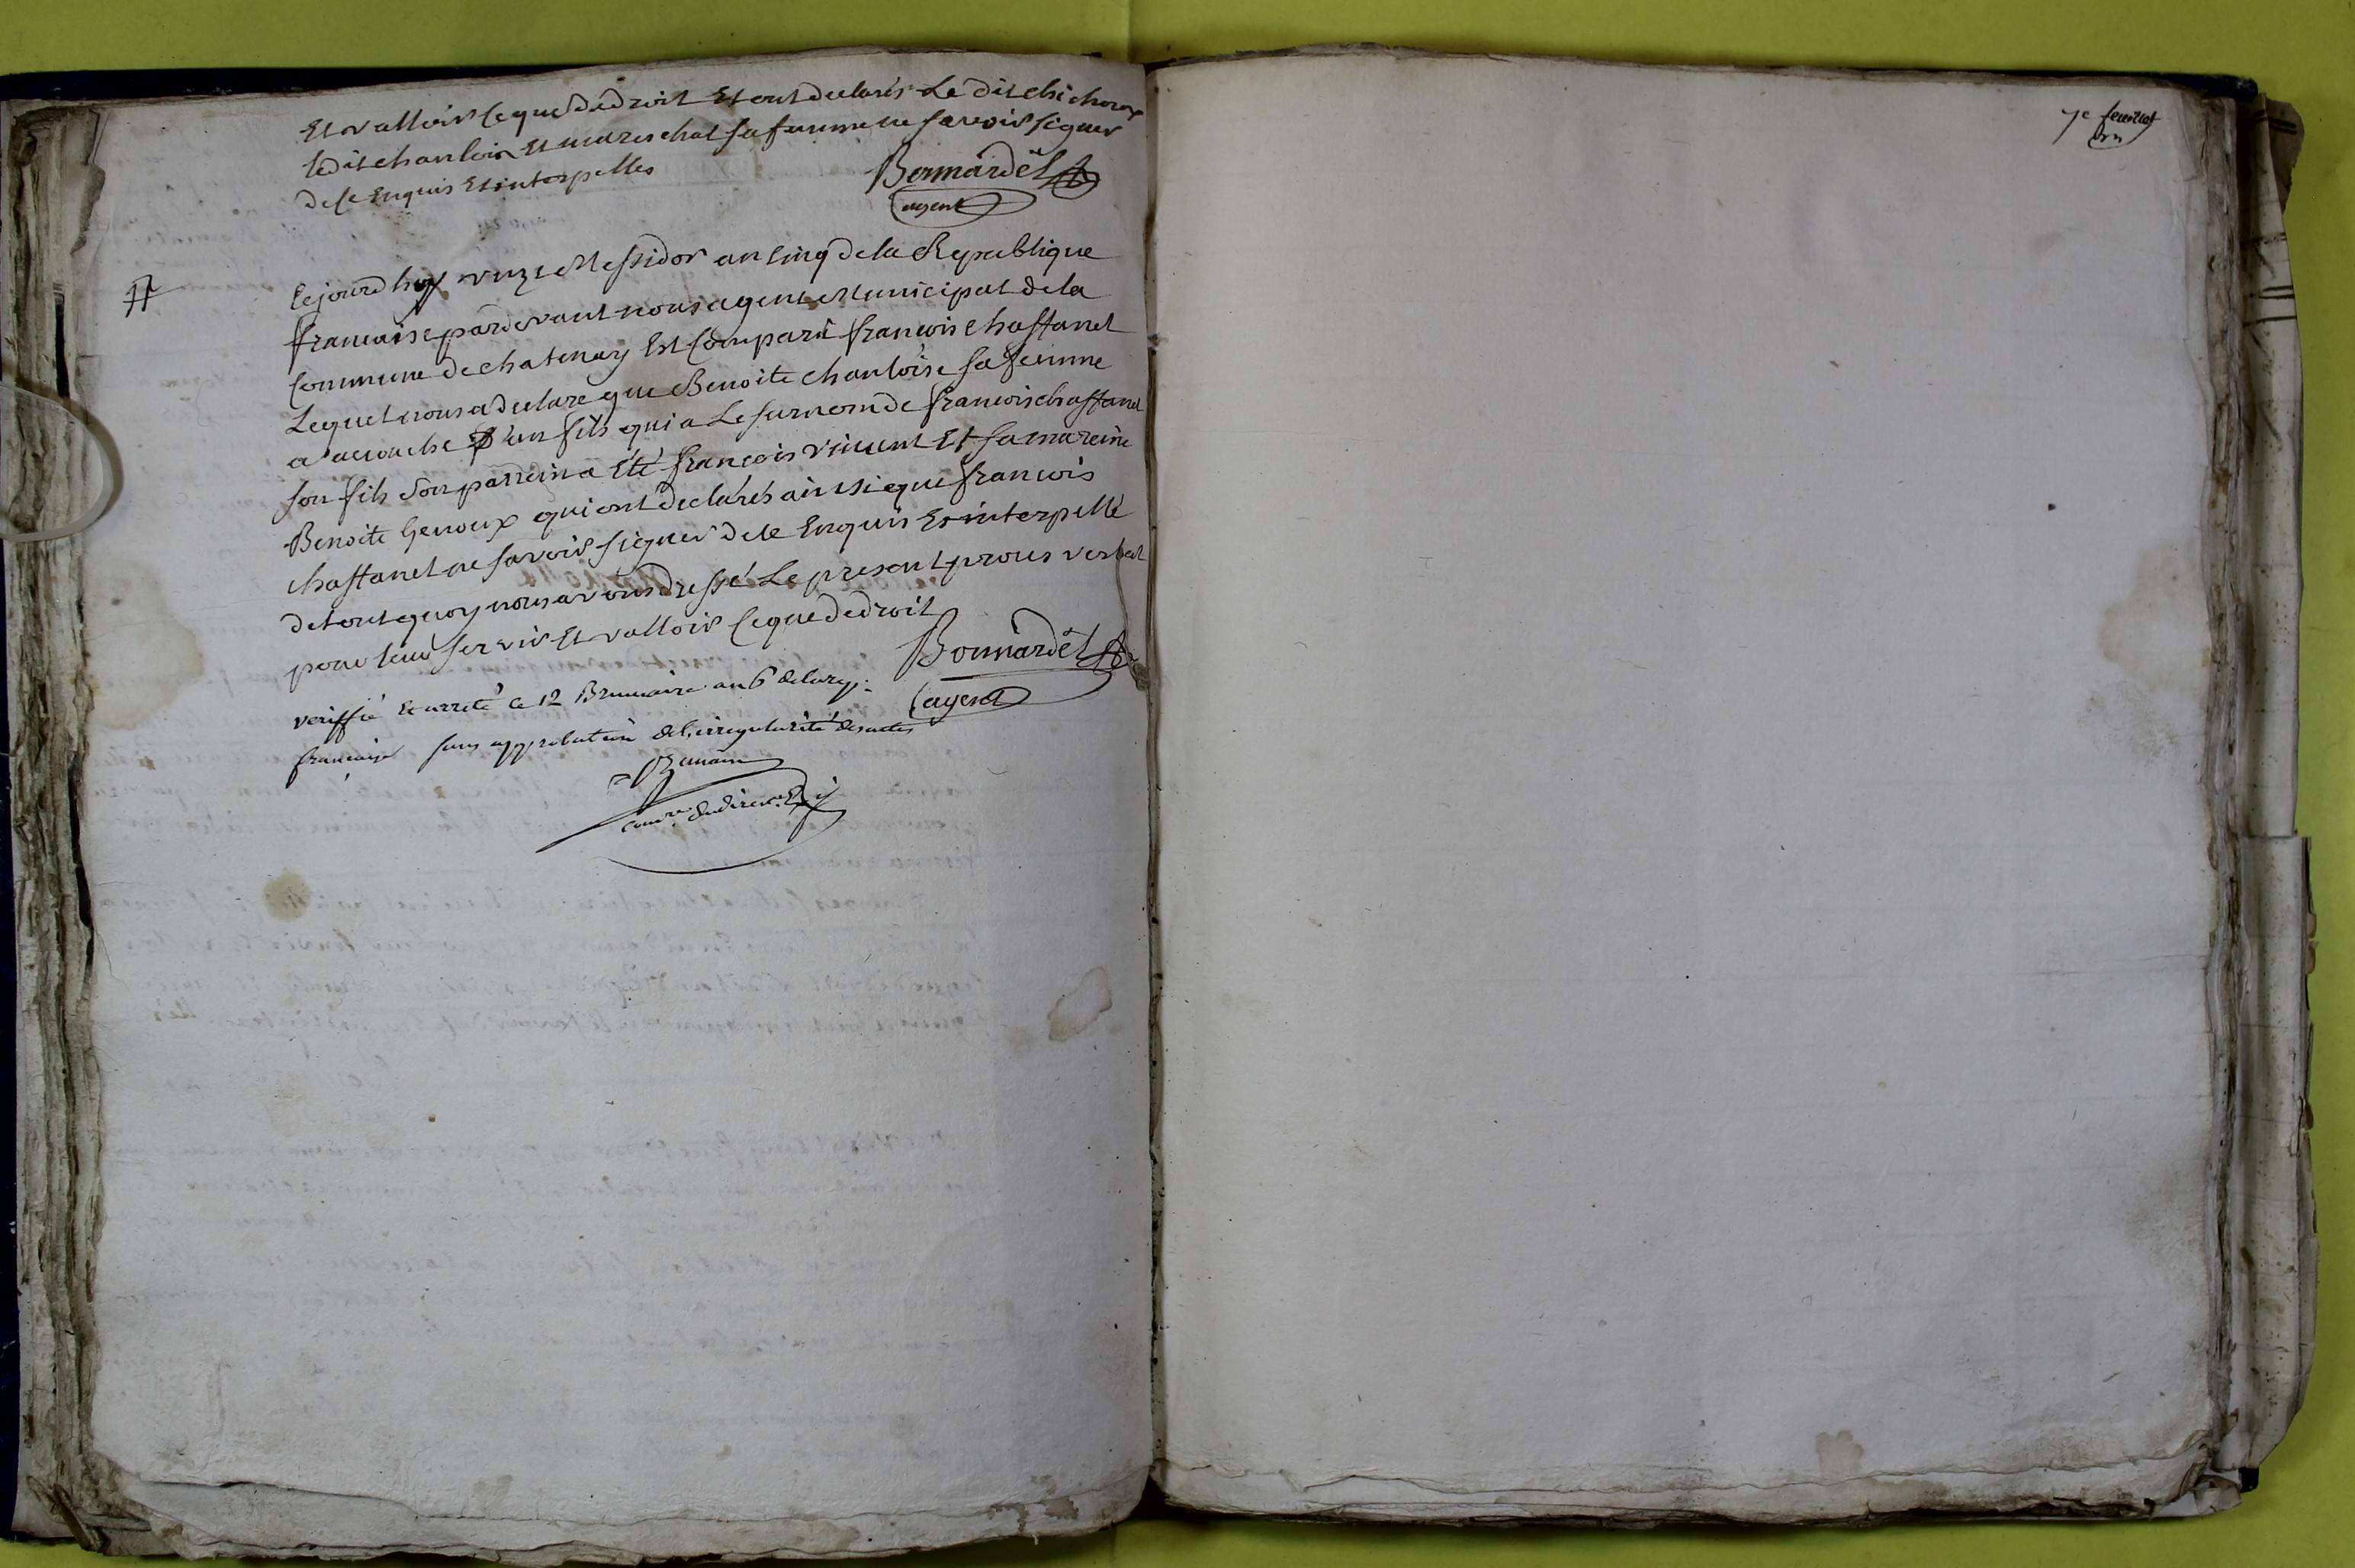 Et valloir ce que de droit Et ont declarés Le dit chichoux
ledit chanloin Et mareschal sa femme ne savoir signer
de ce Enquis Et interpelles
Bonnardel
agent
#
Cejourd huy onze Messidor an cinq de la Republique
francaise pardevant nous agent Municipal de la
Commune de chatenay Est Comparu francois chaffanel
Lequel nous a declare que Benoite chanloise sa femme
a acouche d'un fils qui a Le surnom de francois chaffanel
son fils Son parrein a été francois vincent Et sa mareine
Benoite Genoux qui ont declarés ainsi que francois
chaffanel ne savoir signer de ce Enquis Et interpelle
de tout quoy nous avons dressé Le present proces verbal
pour leur servir Et valloir ce que de droit
Bonnardel
agent
veriffié et arreté le 12 Brumaire an 6 de la rep:
francaise sans approbation de l'irregularité des actes
du direct. Ex.
7e feuillet